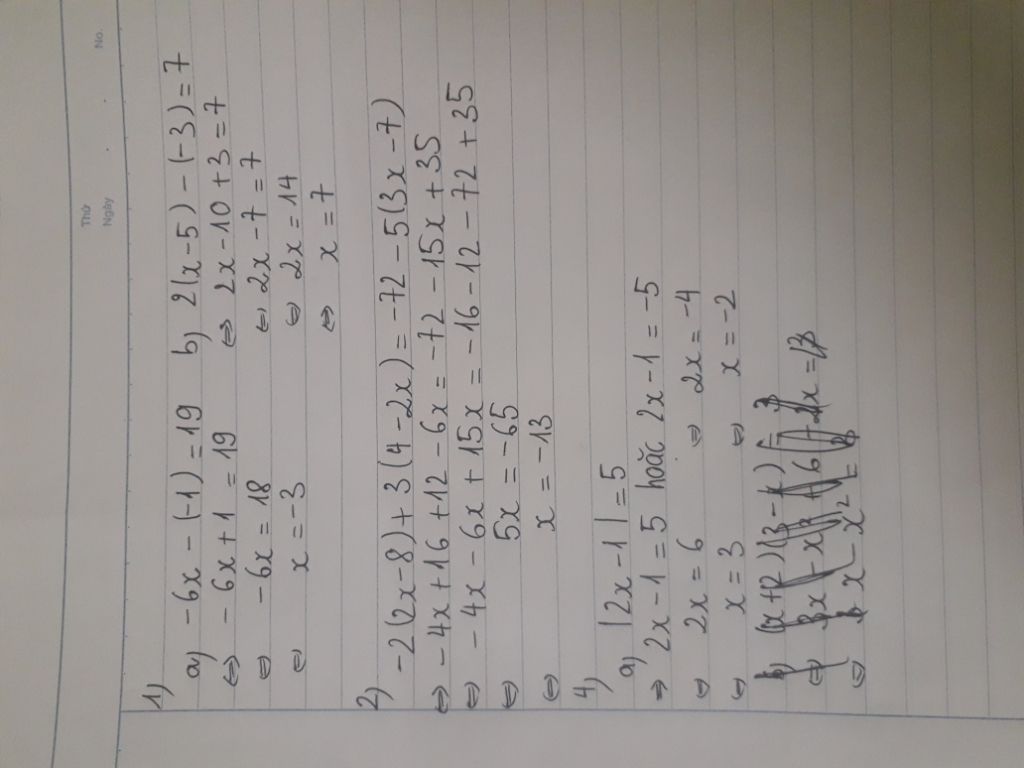 Thứ
Ngày
No.
1)
a) -6x - (-1) = 19 b) 2(x-5) - (-3) = 7
⇔ -6x + 1 = 19 ⇔ 2x - 10 + 3 = 7
⇔ -6x = 18 ⇔ 2x - 7 = 7
⇔ x = -3 ⇔ 2x = 14
⇔ x = 7
2) -2(2x-8) + 3(4-2x) = -72 - 5(3x-7)
⇔ -4x + 16 + 12 - 6x = -72 - 15x + 35
⇔ -4x - 6x + 15x = -16 - 12 - 72 + 35
⇔ 5x = -65
⇔ x = -13
4)
a) |2x-1| = 5
⇒ 2x - 1 = 5 hoặc 2x - 1 = -5
⇔ 2x = 6 ⇔ 2x = -4
⇔ x = 3 ⇔ x = -2